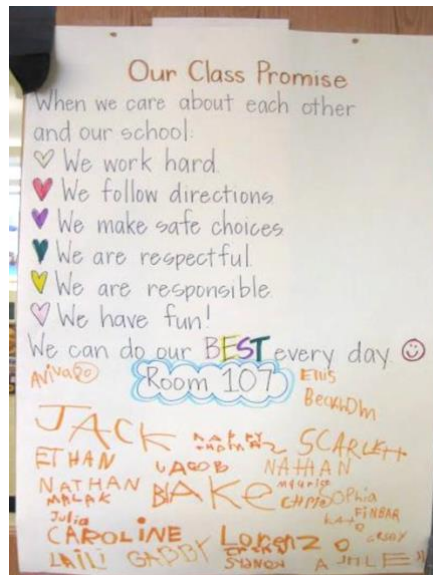 Our Class Promise
When we care about each other
and our school:
We work hard.
We follow directions.
We make safe choices
We are respectful.
We are responsible.
We have fun!
We can do our BEST every day.
Room 107
Ellis
JACK
SCARLETT
ETHAN
JACOB
NATHAN
NATHAN
BLAKE
MALAK
SOPHIA
Julia
FINBAR
CAROLINE
Lorenzo
LAILI GABBY